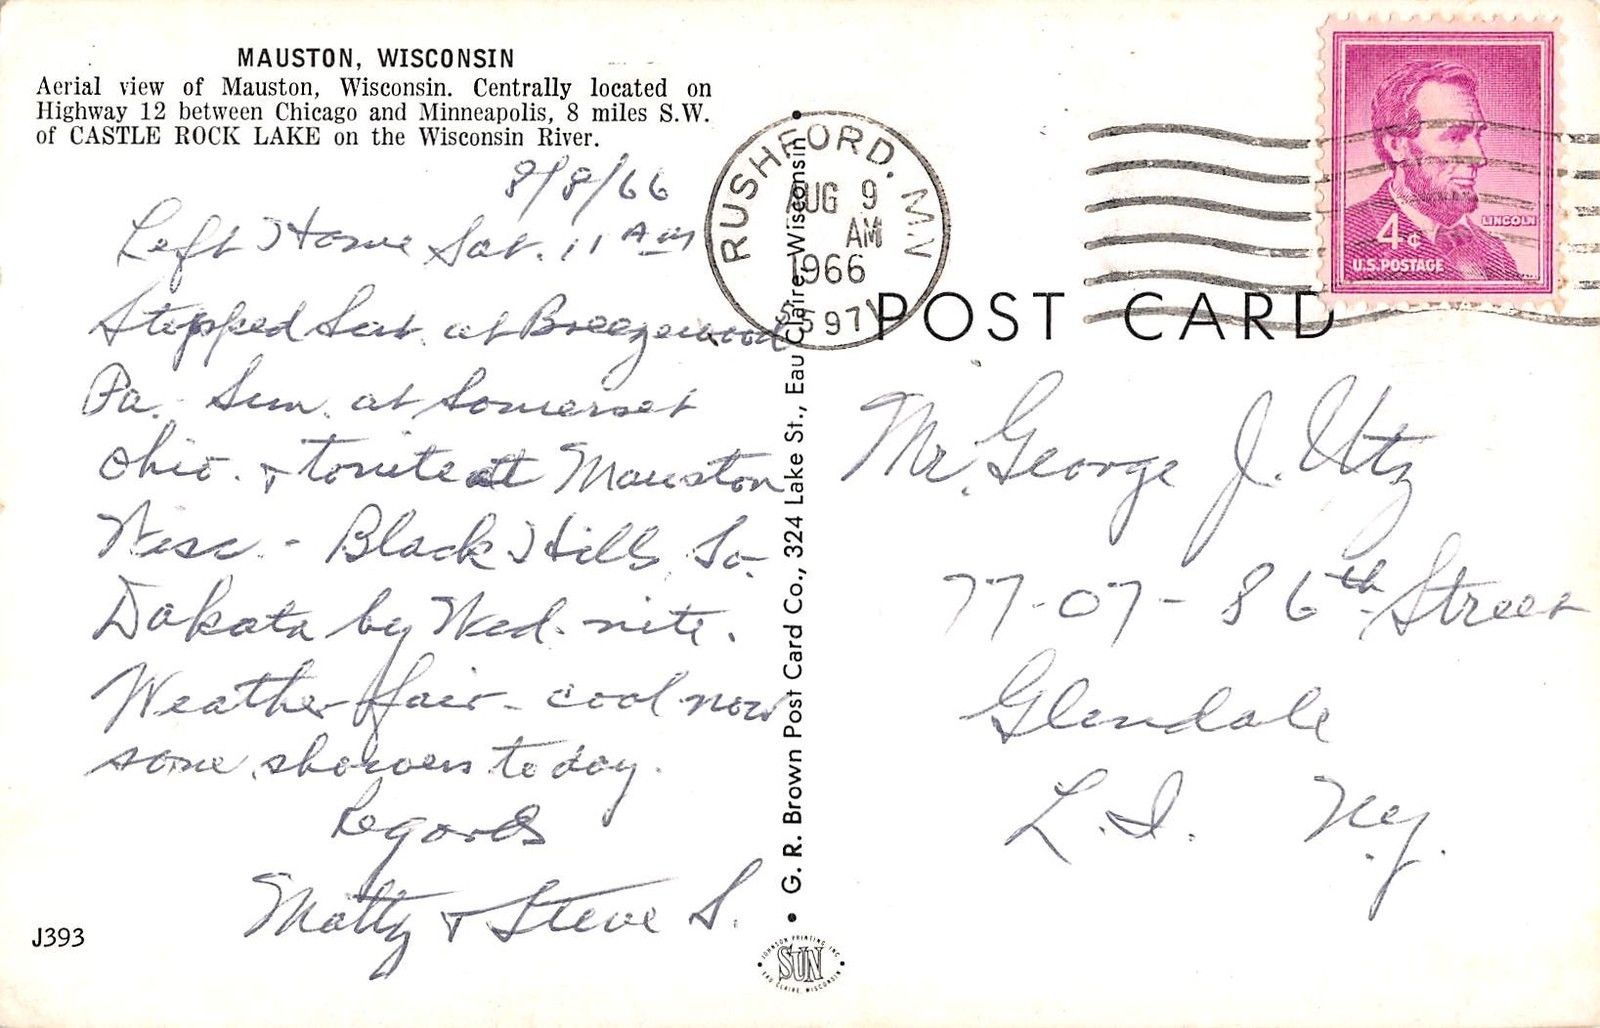 MAUSTON, WISCONSIN
Aerial view of Mauston, Wisconsin. Centrally located on
Highway 12 between Chicago and Minneapolis, 8 miles S.W.
of CASTLE ROCK LAKE on the Wisconsin River.
8/8/66
Left Home Sat. 11 AM
Stopped Sat. at Breezewood
Pa. - Sun. at Somerset
Ohio. & tonite at Mauston
Wisc. - Black Hills So.
Dakota by Wed. nite.
Weather fair - cool now
some showers today.
Regards
Matty & Steve S.
J393
G. R. Brown Post Card Co., 324 Lake St., Eau Claire, Wisconsin
JOHNSON PRINTING INC.
SUN
EAU CLAIRE, WISCONSIN
RUSHFORD, MN
AUG 9
AM
1966
55971
4¢
LINCOLN
U.S. POSTAGE
POST CARD
Mr. George J. Utz
77-07-86th Street
Glendale
L.I. N.Y.